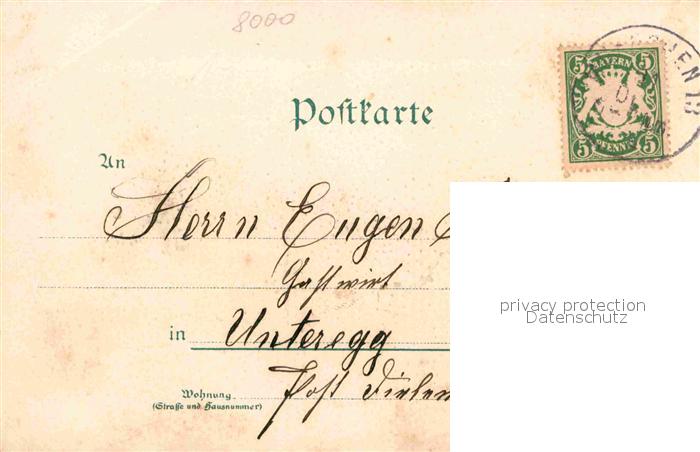 8000
Postkarte
5 BAYERN 5
5 PFENNIG 5
An
Herrn Eugen
Gastwirt
in Unteregg
Post
Wohnung
(Straße und Hausnummer)
privacy protection
Datenschutz